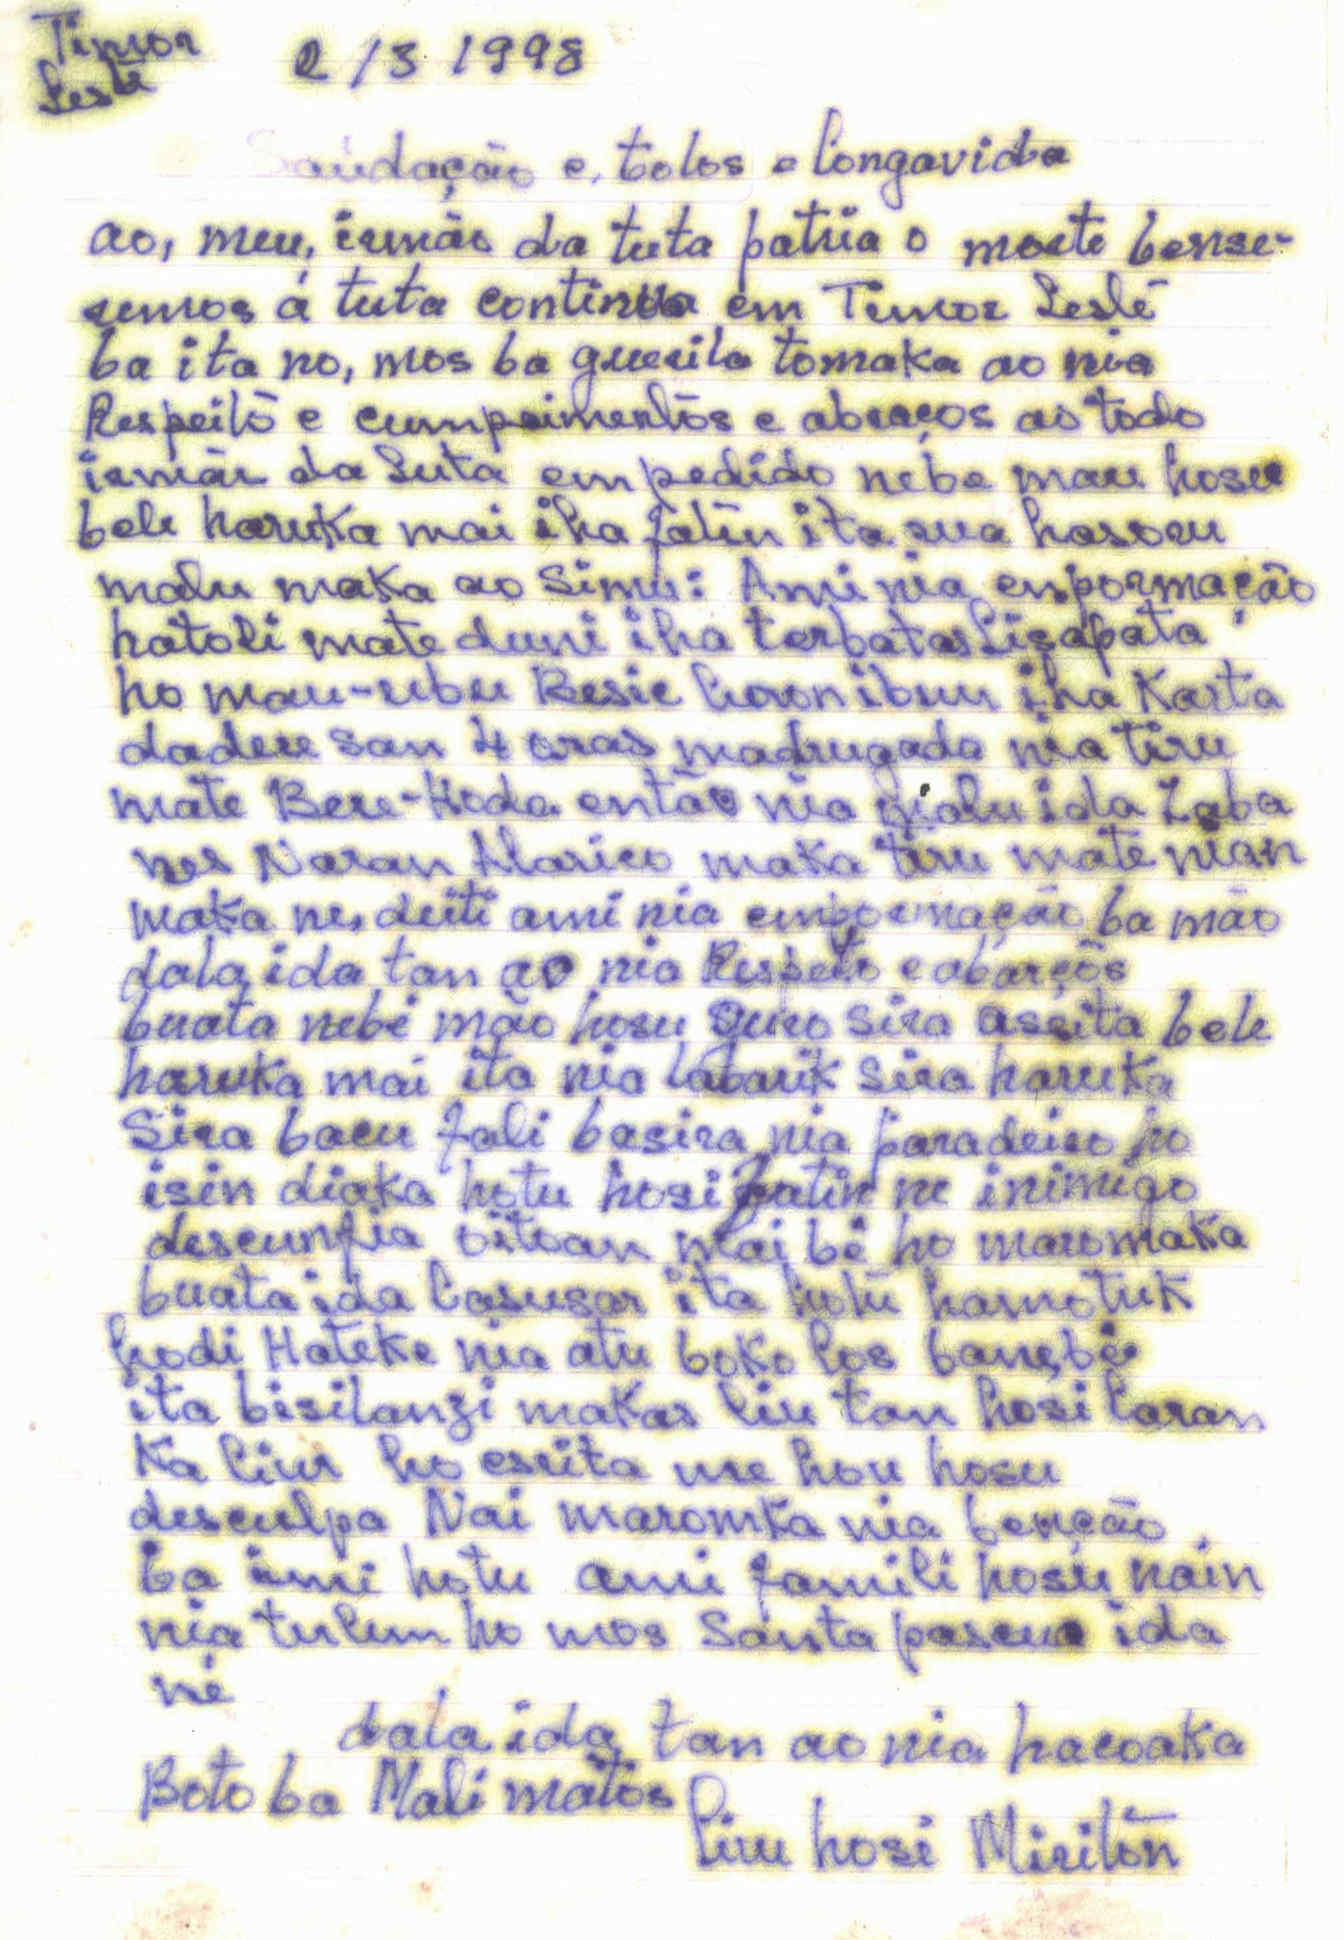 Timor 2/3 1998
Leste
Saúdação e, tolos e longavida
ao, meu, irmão da tuta patria o morte bense-
remos á tuta continua em Timor Lestê
ba ita no, mos ba guerila tomaka ao nia
Respeitõ e cumprimentõs e abraços as todo
irmãu da Luta em pedido nebe mau hosu
bele haruka mai iha fatin ita rua hasoru
malu maka ao Simu: Ami nia enformação
hatoli mate duni iha terbatas
ho mau-rubu Besie loron ibun iha Karta
dadere san 4 oras madrugada nia tiru
mate Bere-Hoda então nia maluida
nes Naran Marico maka tiru mate nian
maka ne, deiti ami nia emformação ba mão
dala ida tan ao nia Respeito e abarçõs
buata nebé mão hosu sira assita bele
haruka mai ita nia labarik sira haruka
Sira baeu fali basira nia paradeiro ho
isin diaka hotu hosi fatin ne inimigo
descunfia oituan mai bé ho maromaka
buata ida lasusar ita hotu hamotuk
hodi Hateke nia atu boko los
ita bisilanzi makas liu tan hosi laran
Ka liur ho esrita ne hou hosu
desculpa Nai maromka nia benção
ba imi hotu ami famili hosu nain
nia tulun ho mos Santa pascua ida
né
dala ida tan ao nia hacoaka
Boto ba Mali matos
liu hosi Miritõn